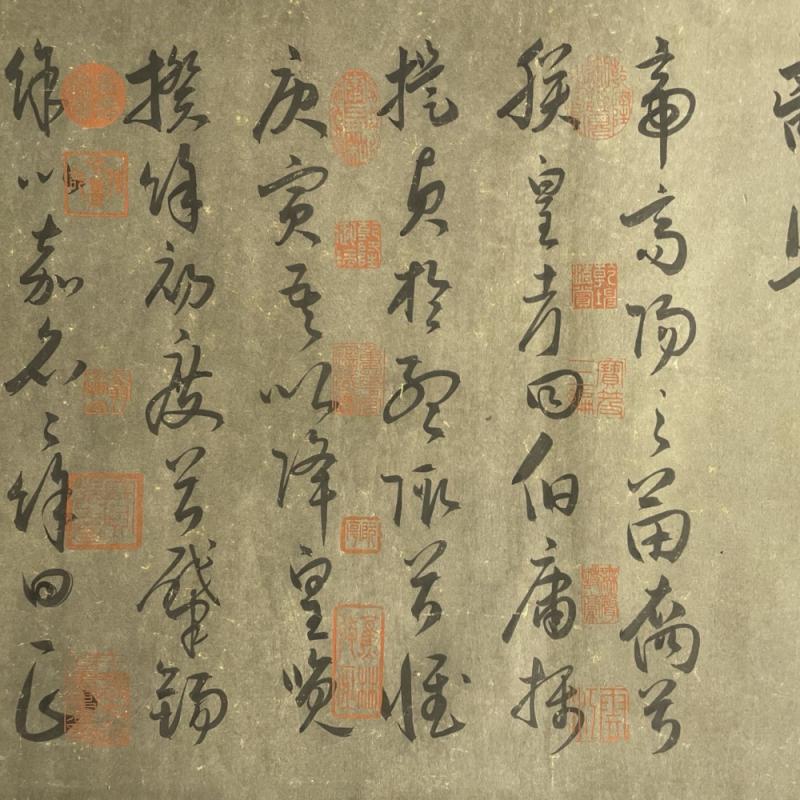 帝高陽之苗裔兮
朕皇考曰伯庸攝
提貞於孟陬兮惟
庚寅吾以降皇覽
揆餘初度兮肇錫
餘以嘉名〻餘曰正